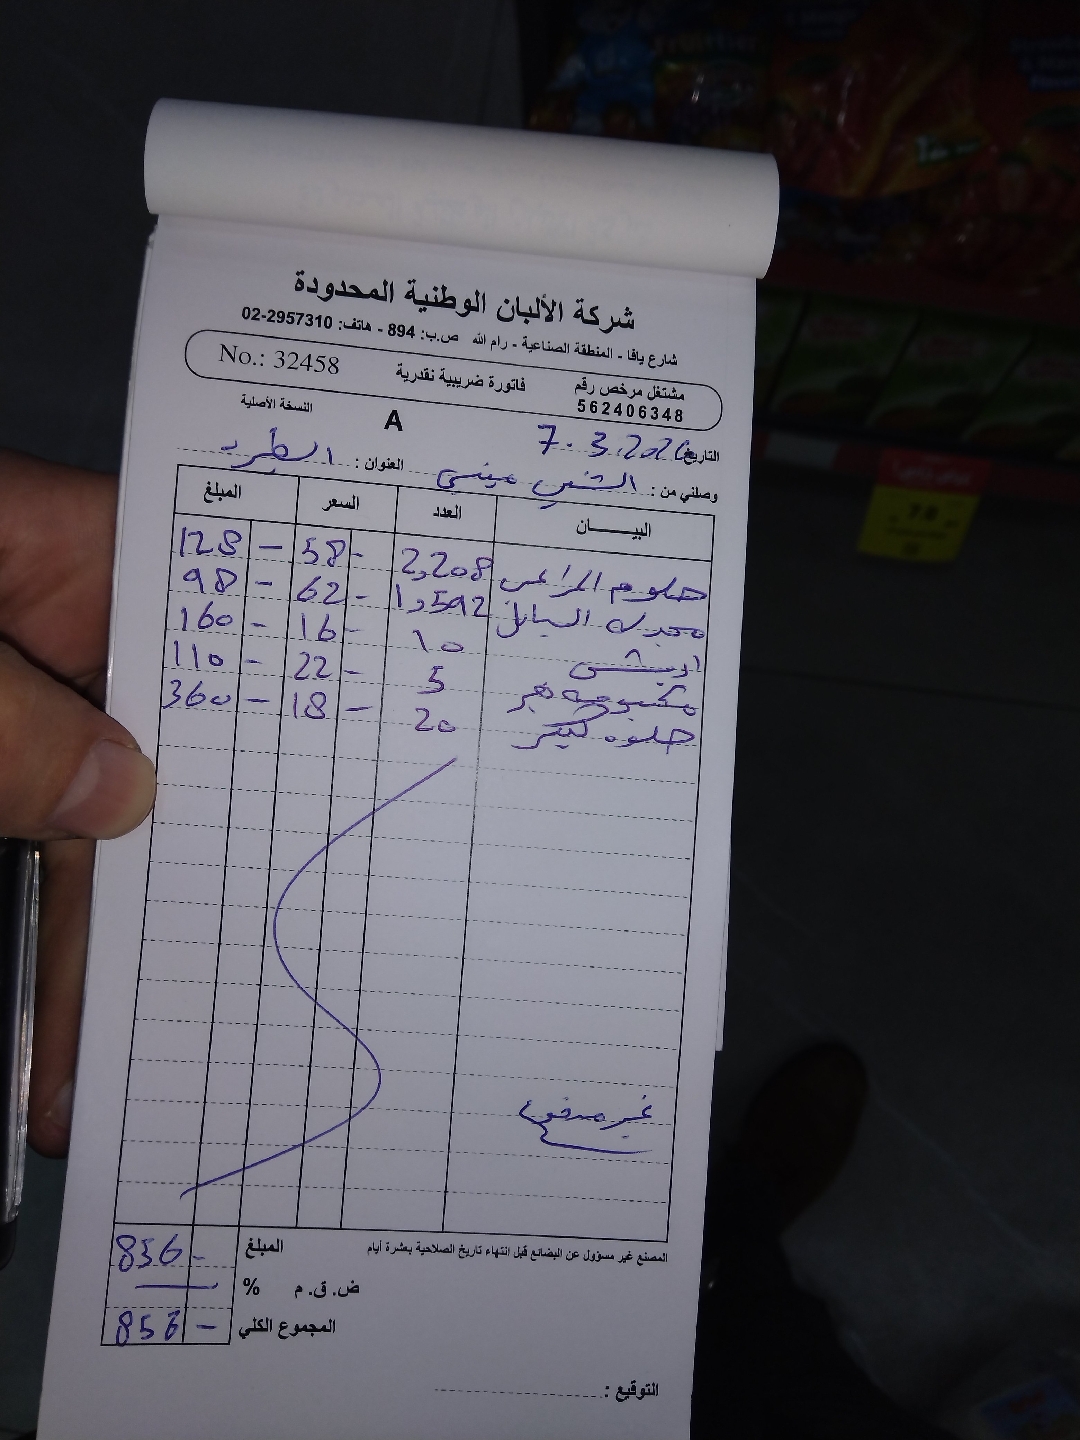 شركة الألبان الوطنية المحدودة
شارع يافا - المنطقة الصناعية - رام الله ص.ب: 894 - هاتف: 02-2957310
مشتغل مرخص رقم
562406348
فاتورة ضريبية نقدرية
No.: 32458
النسخة الأصلية
A
التاريخ 7.3.202
وصلني من : الشني ميني العنوان : الطيره
البيـــــان العدد السعر المبلغ
حلوم المراعي 2,208 58 - 128 -
مجدله 1,592 62 - 98 -
10 16 - 160 -
5 22 - 110 -
20 18 - 360 -
غير مدفوع
المصنع غير مسؤول عن البضائع قبل انتهاء تاريخ الصلاحية بعشرة أيام
المبلغ 856 -
ض. ق. م %
المجموع الكلي 856 -
التوقيع :